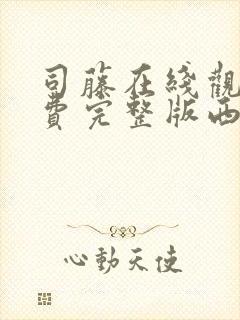 司藤在线觀
費完整版西
心動天使